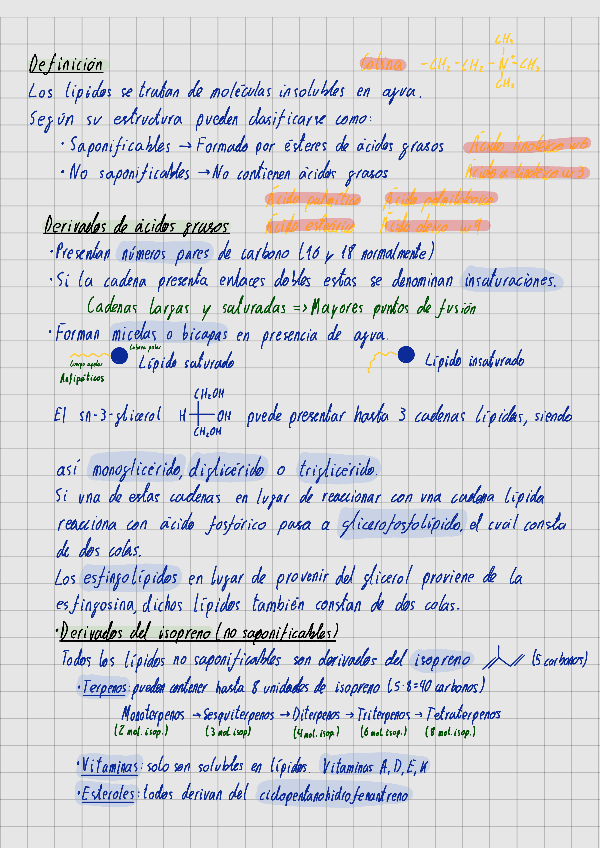 Definición
Colina -CH₂-CH₂-N⁺-CH₃
CH₃
CH₃
Los lípidos se tratan de moléculas insolubles en agua.
Según su estructura pueden clasificarse como:
· Saponificables → Formado por ésteres de ácidos grasos
Ácido linoleico w6
· No saponificables → No contienen ácidos grasos
Ácido α-linoleico w3
Ácido palmítico Ácido palmitoleico
Ácido esteárico Ácido oleico w9
Derivados de ácidos grasos
· Presentan números pares de carbono (16 y 18 normalmente)
· Si la cadena presenta enlaces dobles estas se denominan insaturaciones.
Cadenas largas y saturadas => Mayores puntos de fusión
· Forman micelas o bicapas en presencia de agua.
Cabeza polar
Cuerpo apolar
Lípido saturado
Lípido insaturado
Anfipáticos
El sn-3-glicerol
CH₂OH
H OH
CH₂OH
puede presentar hasta 3 cadenas lípidas, siendo
así monoglicérido, diglicérido o triglicérido.
Si una de estas cadenas en lugar de reaccionar con una cadena lípida
reacciona con ácido fosfórico pasa a glicerofosfolípido, el cual consta
de dos colas.
Los esfingolípidos en lugar de provenir del glicerol proviene de la
esfingosina, dichos lípidos también constan de dos colas.
· Derivados del isopreno (no saponificables)
Todos los lípidos no saponificables son derivados del isopreno (5 carbonos)
· Terpenos: pueden contener hasta 8 unidades de isopreno (5·8=40 carbonos)
Monoterpenos → Sesquiterpenos → Diterpenos → Triterpenos → Tetraterpenos
(2 mol. isop.) (3 mol. isop) (4 mol. isop.) (6 mol. isop.) (8 mol. isop.)
· Vitaminas: solo son solubles en lípidos. Vitaminas A, D, E, K
· Esteroles: todos derivan del ciclopentanohidrofenantreno